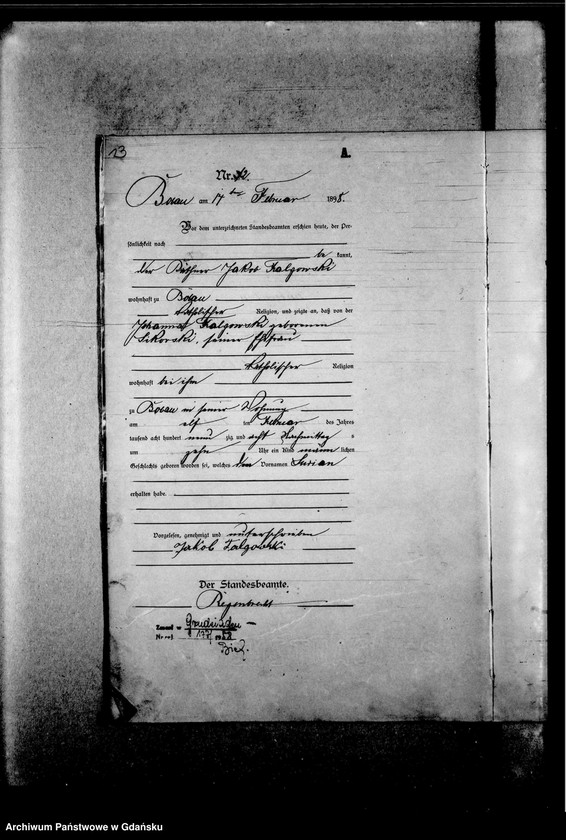 13
A.
Nr. 12.
Bosau am 17ten Februar 1898.
Vor dem unterzeichneten Standesbeamten erschien heute, der Per-
sönlichkeit nach
be kannt,
der Käthner Jakob Falgowski
wohnhaft zu Bosau
katholischer Religion, und zeigte an, daß von der
Johanna Falgowski geborenen
Sikorski, seiner Ehefrau
katholischer Religion
wohnhaft bei ihm
zu Bosau in seiner Wohnung
am elf ten Februar des Jahres
tausend acht hundert neun zig und acht Nachmittag s
um zehn Uhr ein Kind männ lichen
Geschlechts geboren worden sei, welches den Vornamen
erhalten habe.
Vorgelesen, genehmigt und unterschrieben
Jakob Falgowski
Der Standesbeamte.
Zmarł w
Nr
Archiwum Państwowe w Gdańsku